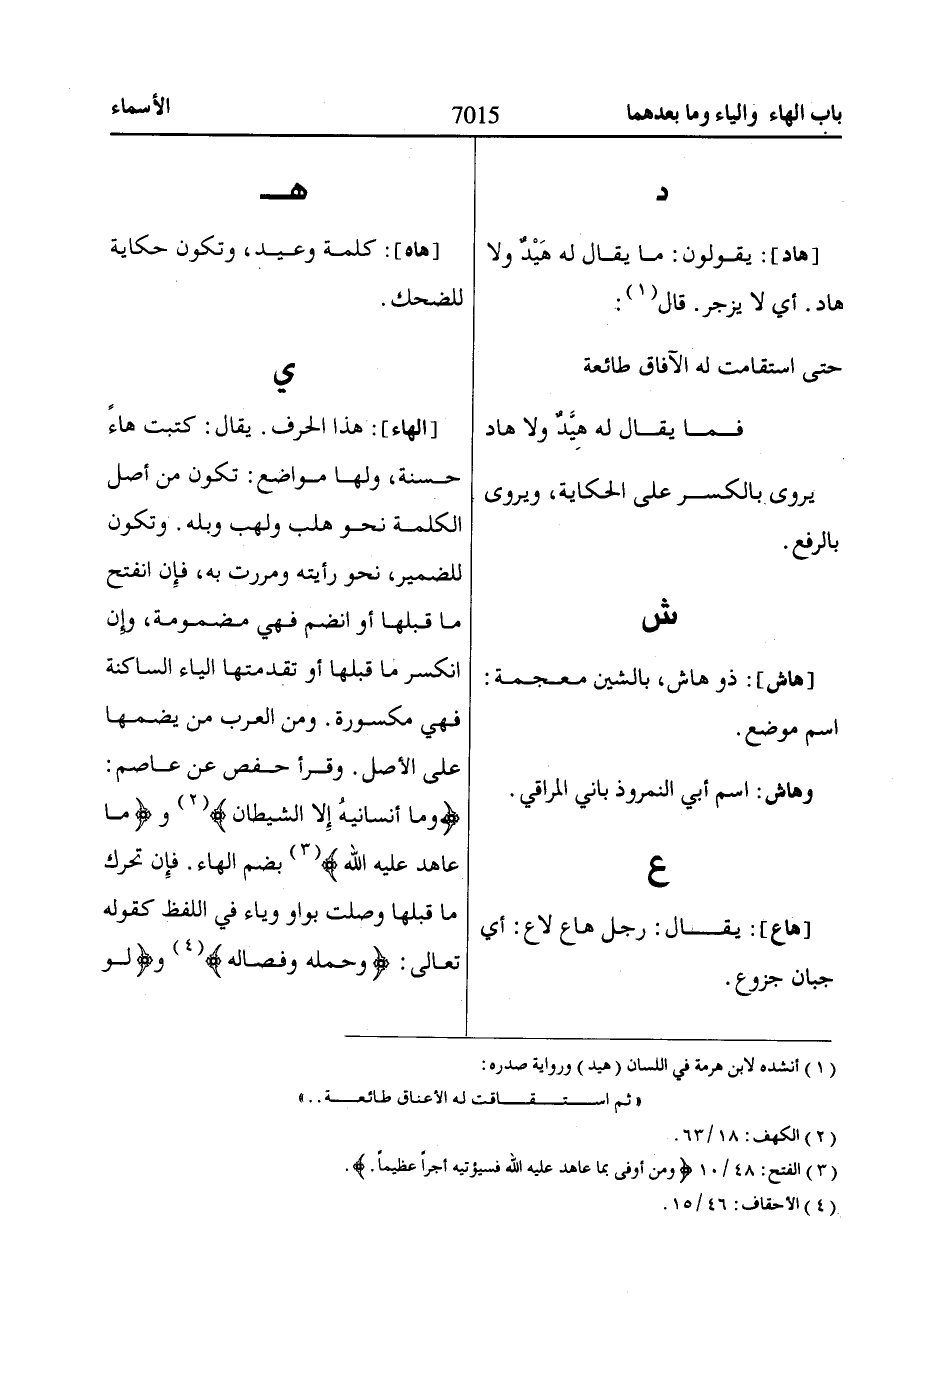 باب الهاء والياء وما بعدهما
7015
الأسماء
د
[هاد]: يقولون: ما يقال له هَيْدٌ ولا
هاد. أي لا يزجر. قال(١):
حتى استقامت له الآفاق طائعة
فما يقال له هيَّدٌ ولا هاد
يروى بالكسر على الحكاية، ويروى
بالرفع.
ش
[هاش]: ذو هاش، بالشين معجمة:
اسم موضع.
وهاش: اسم أبي النمروذ باني المراقي.
ع
[هاع]: يقال: رجل هاع لاع: أي
جبان جزوع.
هـ
[هاه]: كلمة وعيد، وتكون حكاية
للضحك.
ي
[الهاء]: هذا الحرف. يقال: كتبت هاءً
حسنة، ولها مواضع: تكون من أصل
الكلمة نحو هلب ولهب وبله. وتكون
للضمير، نحو رأيته ومررت به، فإن انفتح
ما قبلها أو انضم فهي مضمومة، وإن
انكسر ما قبلها أو تقدمتها الياء الساكنة
فهي مكسورة. ومن العرب من يضمها
على الأصل. وقرأ حفص عن عاصم:
﴿وما أنسانيهُ إلا الشيطان﴾(٢) و ﴿ما
عاهد عليه الله﴾(٣) بضم الهاء. فإن تحرك
ما قبلها وصلت بواو وياء في اللفظ كقوله
تعالى: ﴿وحمله وفصاله﴾(٤) و﴿لو
(١) أنشده لابن هرمة في اللسان (هيد) ورواية صدره:
«ثم استقاقت له الأعناق طائعة..»
(٢) الكهف: ١٨/ ٦٣.
(٣) الفتح: ٤٨/ ١٠ ﴿ومن أوفى بما عاهد عليه الله فسيؤتيه أجراً عظيماً.﴾.
(٤) الأحقاف: ٤٦/ ١٥.